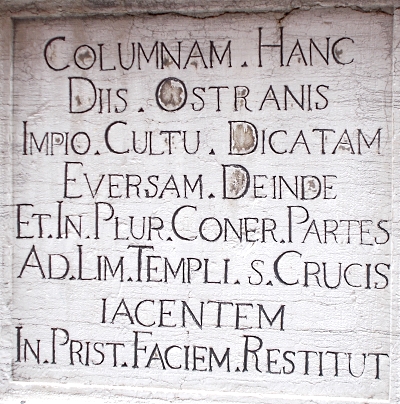 COLUMNAM . HANC
DIIS . OSTRANIS
IMPIO. CULTU . DICATAM
EVERSAM. DEINDE
ET. IN. PLUR. CONER. PARTES
AD. LIM. TEMPLI. S. CRUCIS
IACENTEM
IN. PRIST. FACIEM. RESTITUT